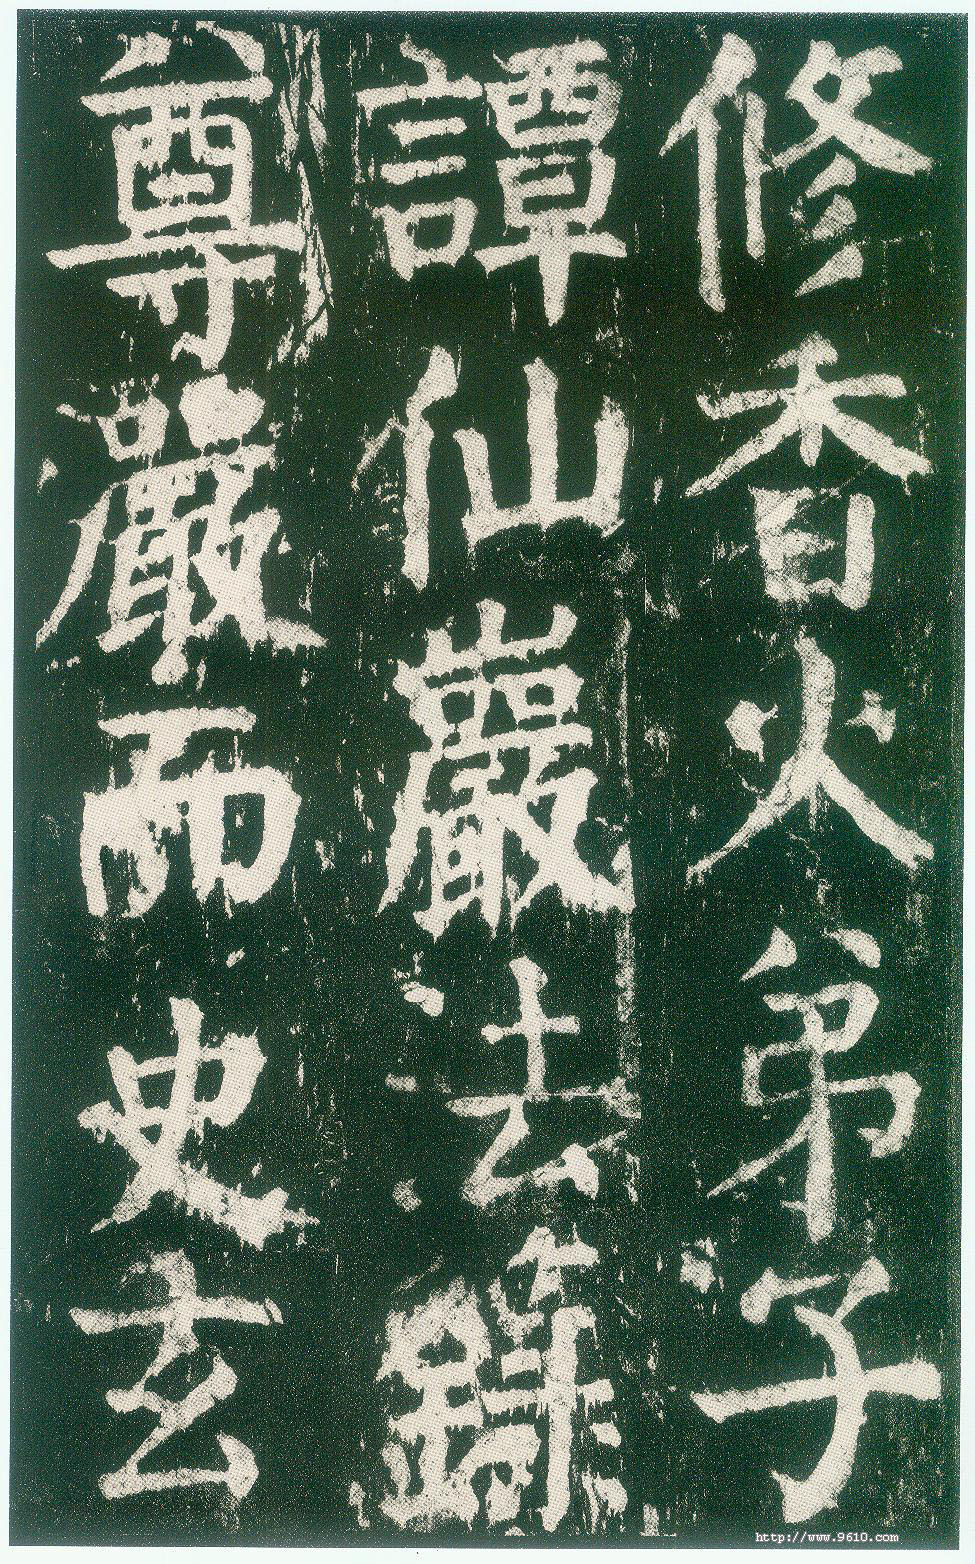 修香火弟子
譚仙巖法籙
尊嚴而史玄
http://www.9610.com